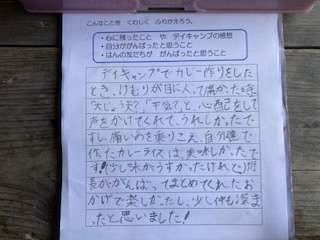 こんなことを くわしく ふりかえろう。
・心に残ったこと や デイキャンプの感想
・自分ががんばったと思うこと
・はんの友だちが がんばったと思うこと
デイキャンプでカレー作りをした
とき、けむりが目に入って痛かった時
「大じょう夫?」「平気?」と、心配をして
声をかけてくれて、うれしかったで
すし、痛いのを乗りこえ、自分達で
作ったカレーライスは美味しかったで
す!(少し味がうすかったけれど)
長ががんばってまとめてくれたお
かげで楽しかったし、少し仲も深ま
ったと思いました!